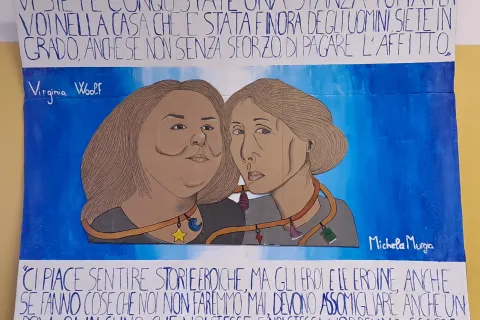 VI SIETE CONQUISTATE UNA STANZA TUTTA PER
VOI NELLA CASA CHE È STATA FINORA DEGLI UOMINI. SIETE IN
GRADO, ANCHE SE NON SENZA SFORZO, DI PAGARE L'AFFITTO...
Virginia Woolf
Michela Murgia
"CI PIACE SENTIRE STORIE EROICHE, MA GLI EROI E LE EROINE, ANCHE
SE FANNO COSE CHE VOI NON FAREMMO MAI, DEVONO ASSOMIGLIARE ANCHE UN